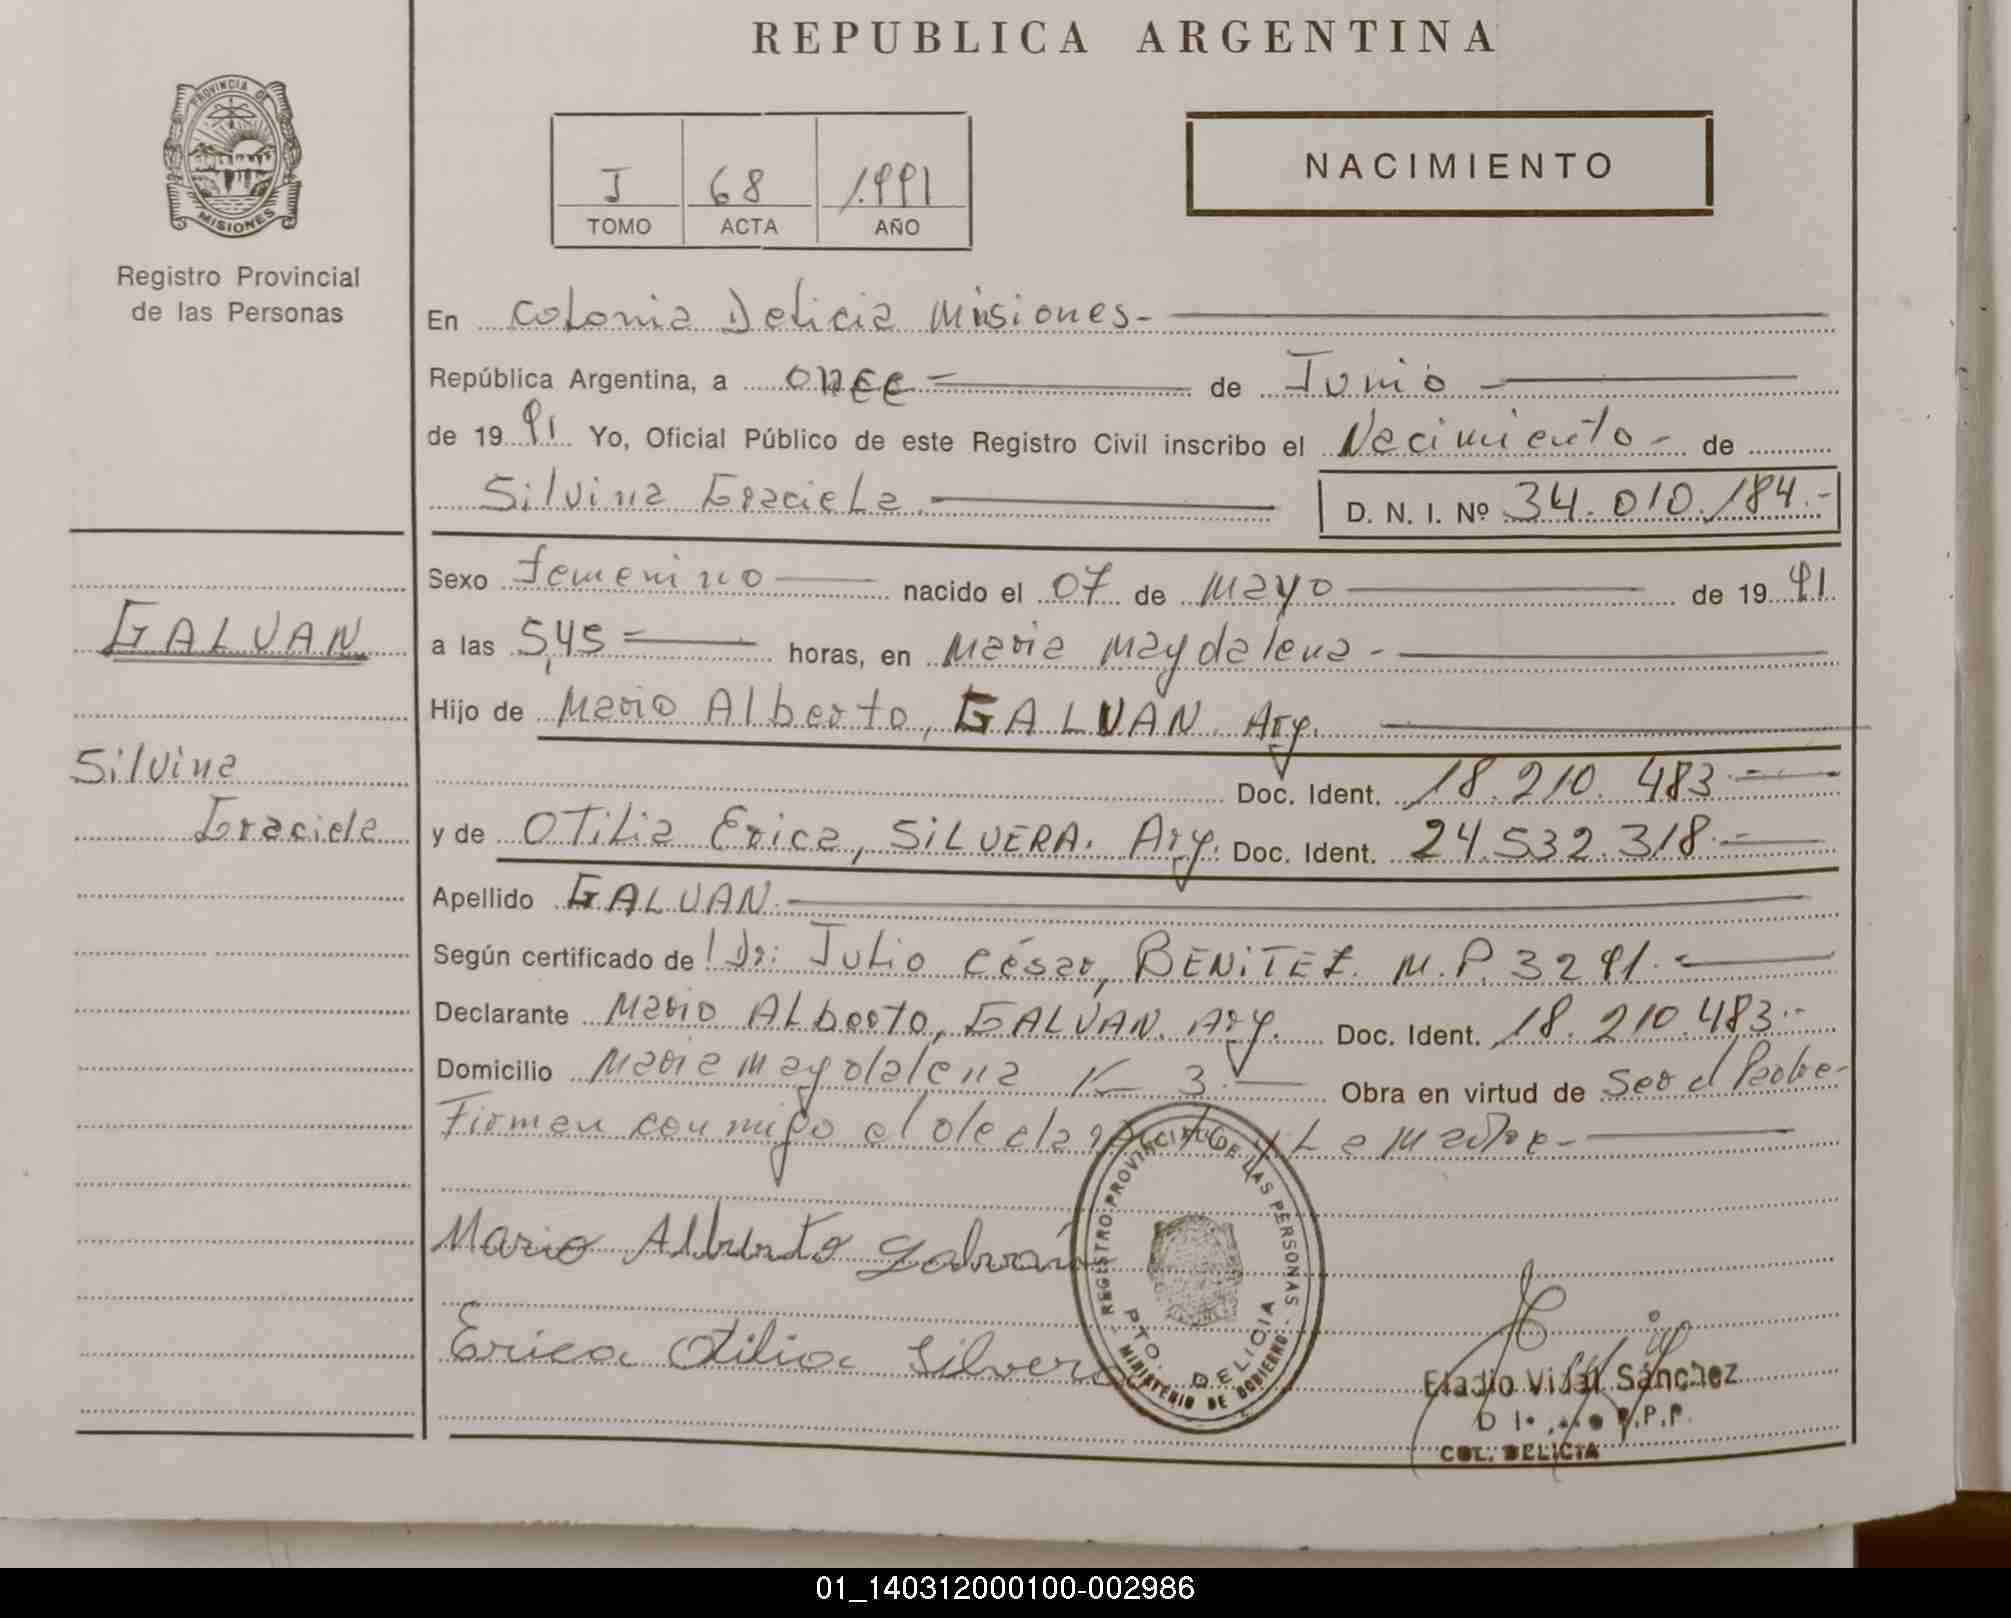 REPUBLICA ARGENTINA
PROVINCIA DE
MISIONES
Registro Provincial
de las Personas
J 68 1.991
TOMO ACTA AÑO
NACIMIENTO
En Colonia Delicia Misiones.-
República Argentina, a once - de Junio -
de 19 91 Yo, Oficial Público de este Registro Civil inscribo el Nacimiento - de
Silvina Graciela. D. N. I. Nº 34.010.184.-
Sexo femenino nacido el 07 de Mayo de 19 91.
GALVAN
a las 5,45 horas, en Maria Magdalena -
Hijo de Mario Alberto, GALVAN. Arg.
Silvina
Doc. Ident. 18.210.483.-
Graciela
y de OTilia Erica, SILVERA. Arg. Doc. Ident. 24.532.318.-
Apellido GALVAN.
Según certificado de Dr: Julio César, BENITEZ. M.P. 3291.-
Declarante Mario Alberto, GALVAN. Arg. Doc. Ident. 18.210.483.-
Domicilio Maria Magdalena K 3.- Obra en virtud de Ser el Padre-
Firman conmigo el declarante y La Madre-
Mario Alberto Galván
Erica Otilia Silvera
REGISTRO PROVINCIAL DE LAS PERSONAS
PTO. DELICIA
MINISTERIO DE GOBIERNO
Eladio Vidal Sánchez
R.P.P.
COL. DELICIA
01_140312000100-002986